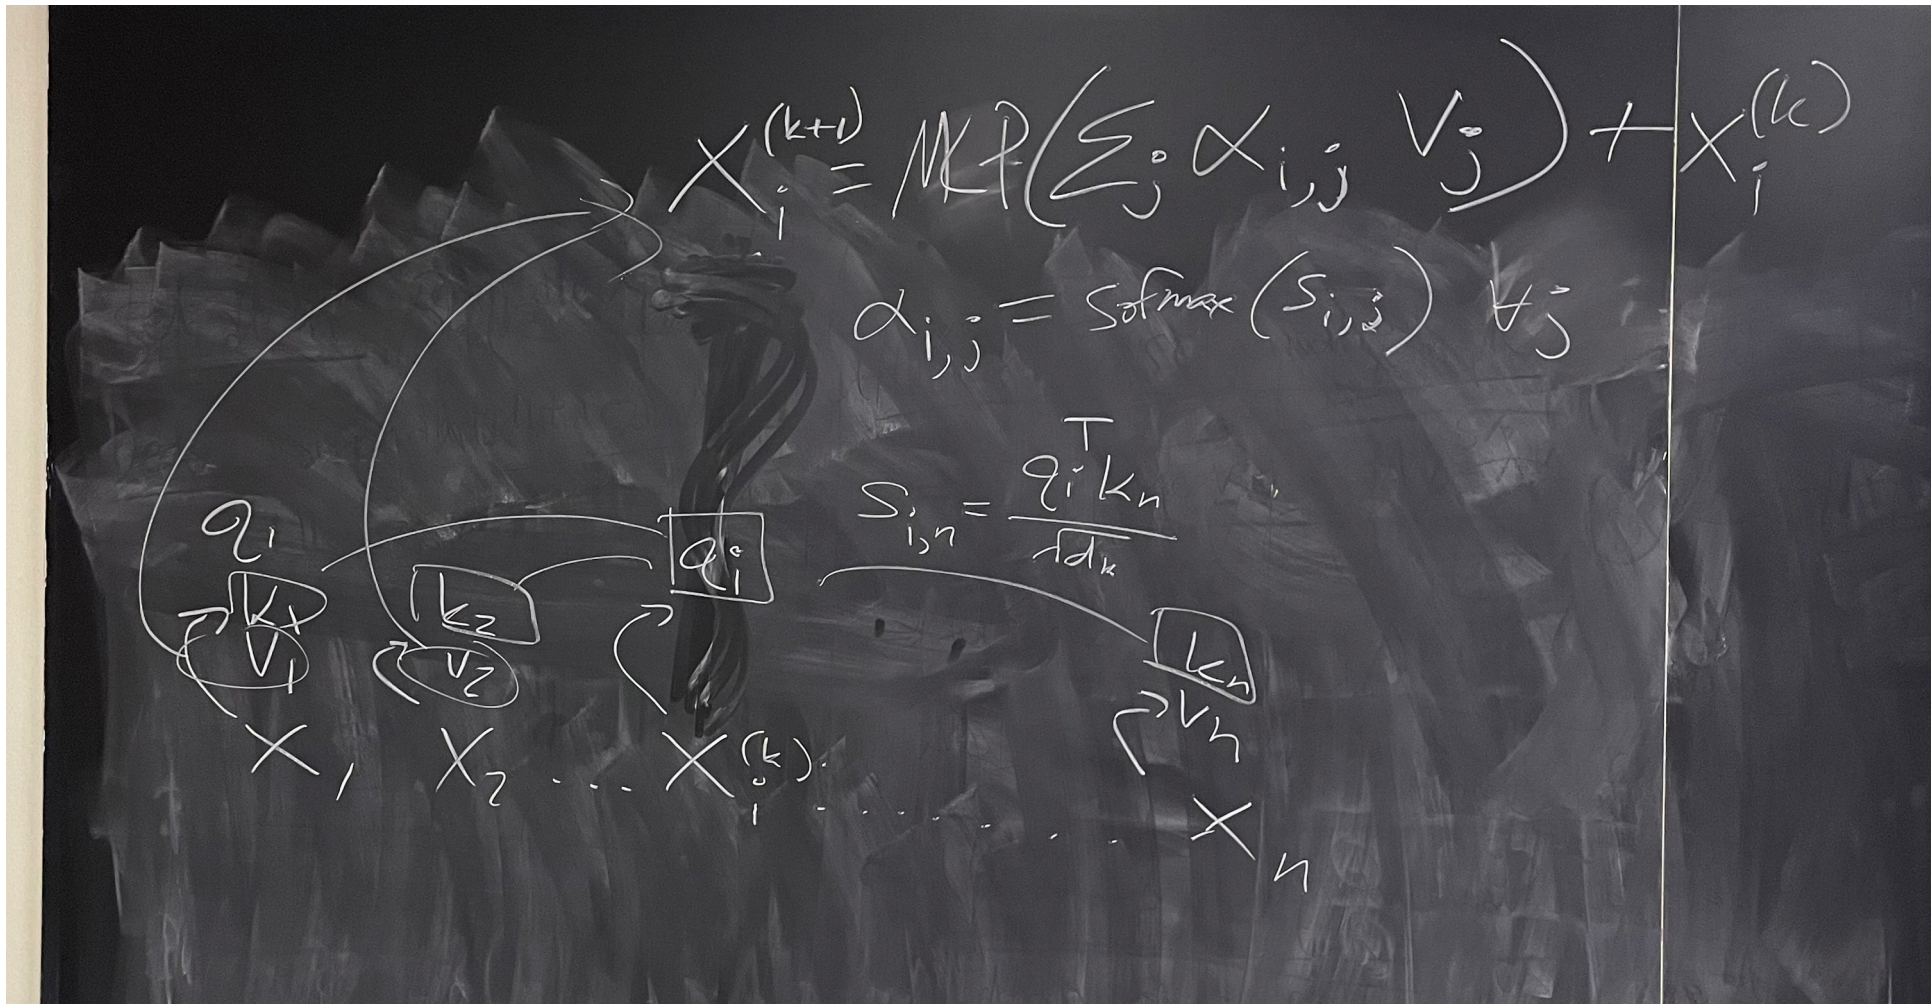 X_i^(k+1) = MLP(Σ_j α_i,j V_j) + X_i^(k)
α_i,j = Sofmax(S_i,j) ∀j
S_i,n = q_i^T k_n / √d_k
q_1 q_i
k_1 k_2 k_n
V_1 V_2 V_n
X_1 X_2 ... X_i^(k) ........ X_n